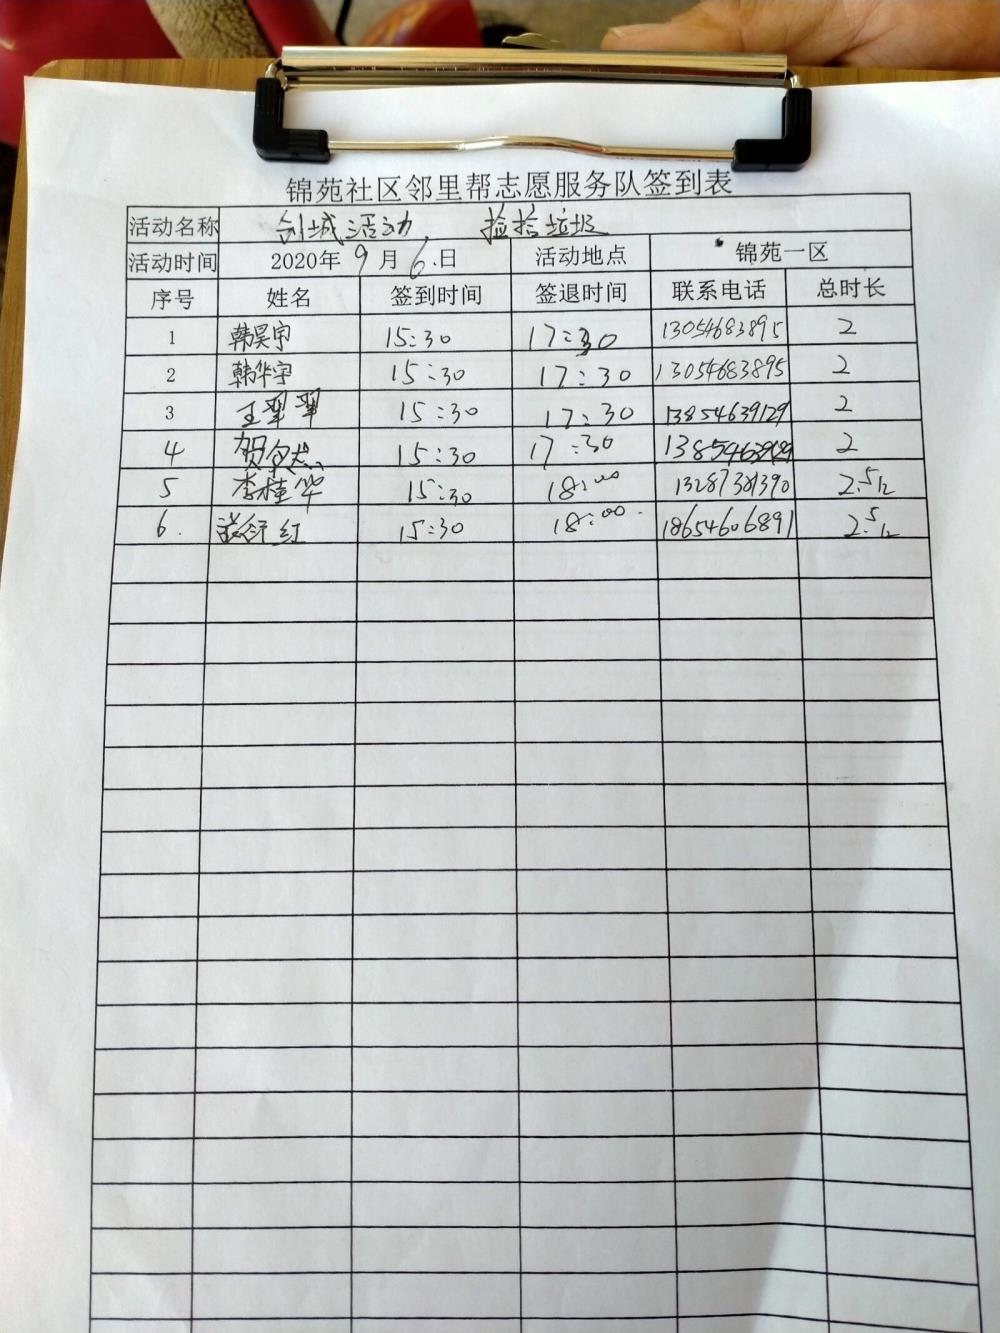 锦苑社区邻里帮志愿服务队签到表
活动名称 创城活动 捡拾垃圾
活动时间 2020年 9 月 6 日 活动地点 锦苑一区
序号 姓名 签到时间 签退时间 联系电话 总时长
1 韩昊宇 15:30 17:30 13054683895 2
2 韩华宇 15:30 17:30 13054683895 2
3 王翠翠 15:30 17:30 13854639129 2
4 15:30 17:30 2
5 李桂华 15:30 18:00 2.5h
6. 15:30 18:00 18654606891 2.5h